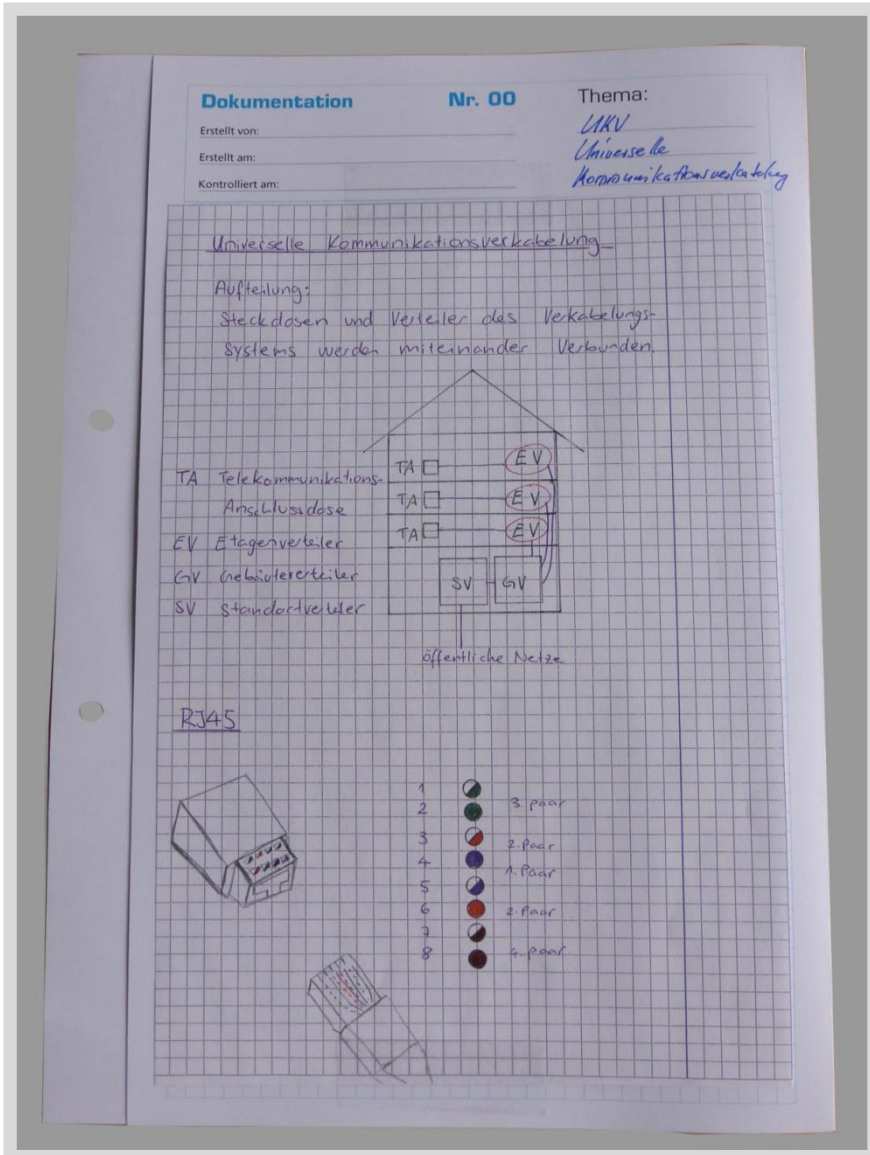 Dokumentation Nr. 00 Thema:
Erstellt von:
Erstellt am:
Kontrolliert am:
UKV
Universelle
Kommunikationsverkabelung
Universelle Kommunikationsverkabelung
Aufteilung:
Steckdosen und Verteiler des Verkabelungs-
Systems werden miteinander Verbunden.
TA Telekommunikations-
Anschlussdose
EV Etagenverteiler
GV Gebäuteverteiler
SV Standortverteiler
TA EV
TA EV
TA EV
SV GV
öffentliche Netze
RJ45
1
2 3. paar
3 2. Paar
4 1. Paar
5
6 2. Paar
7
8 4. paar